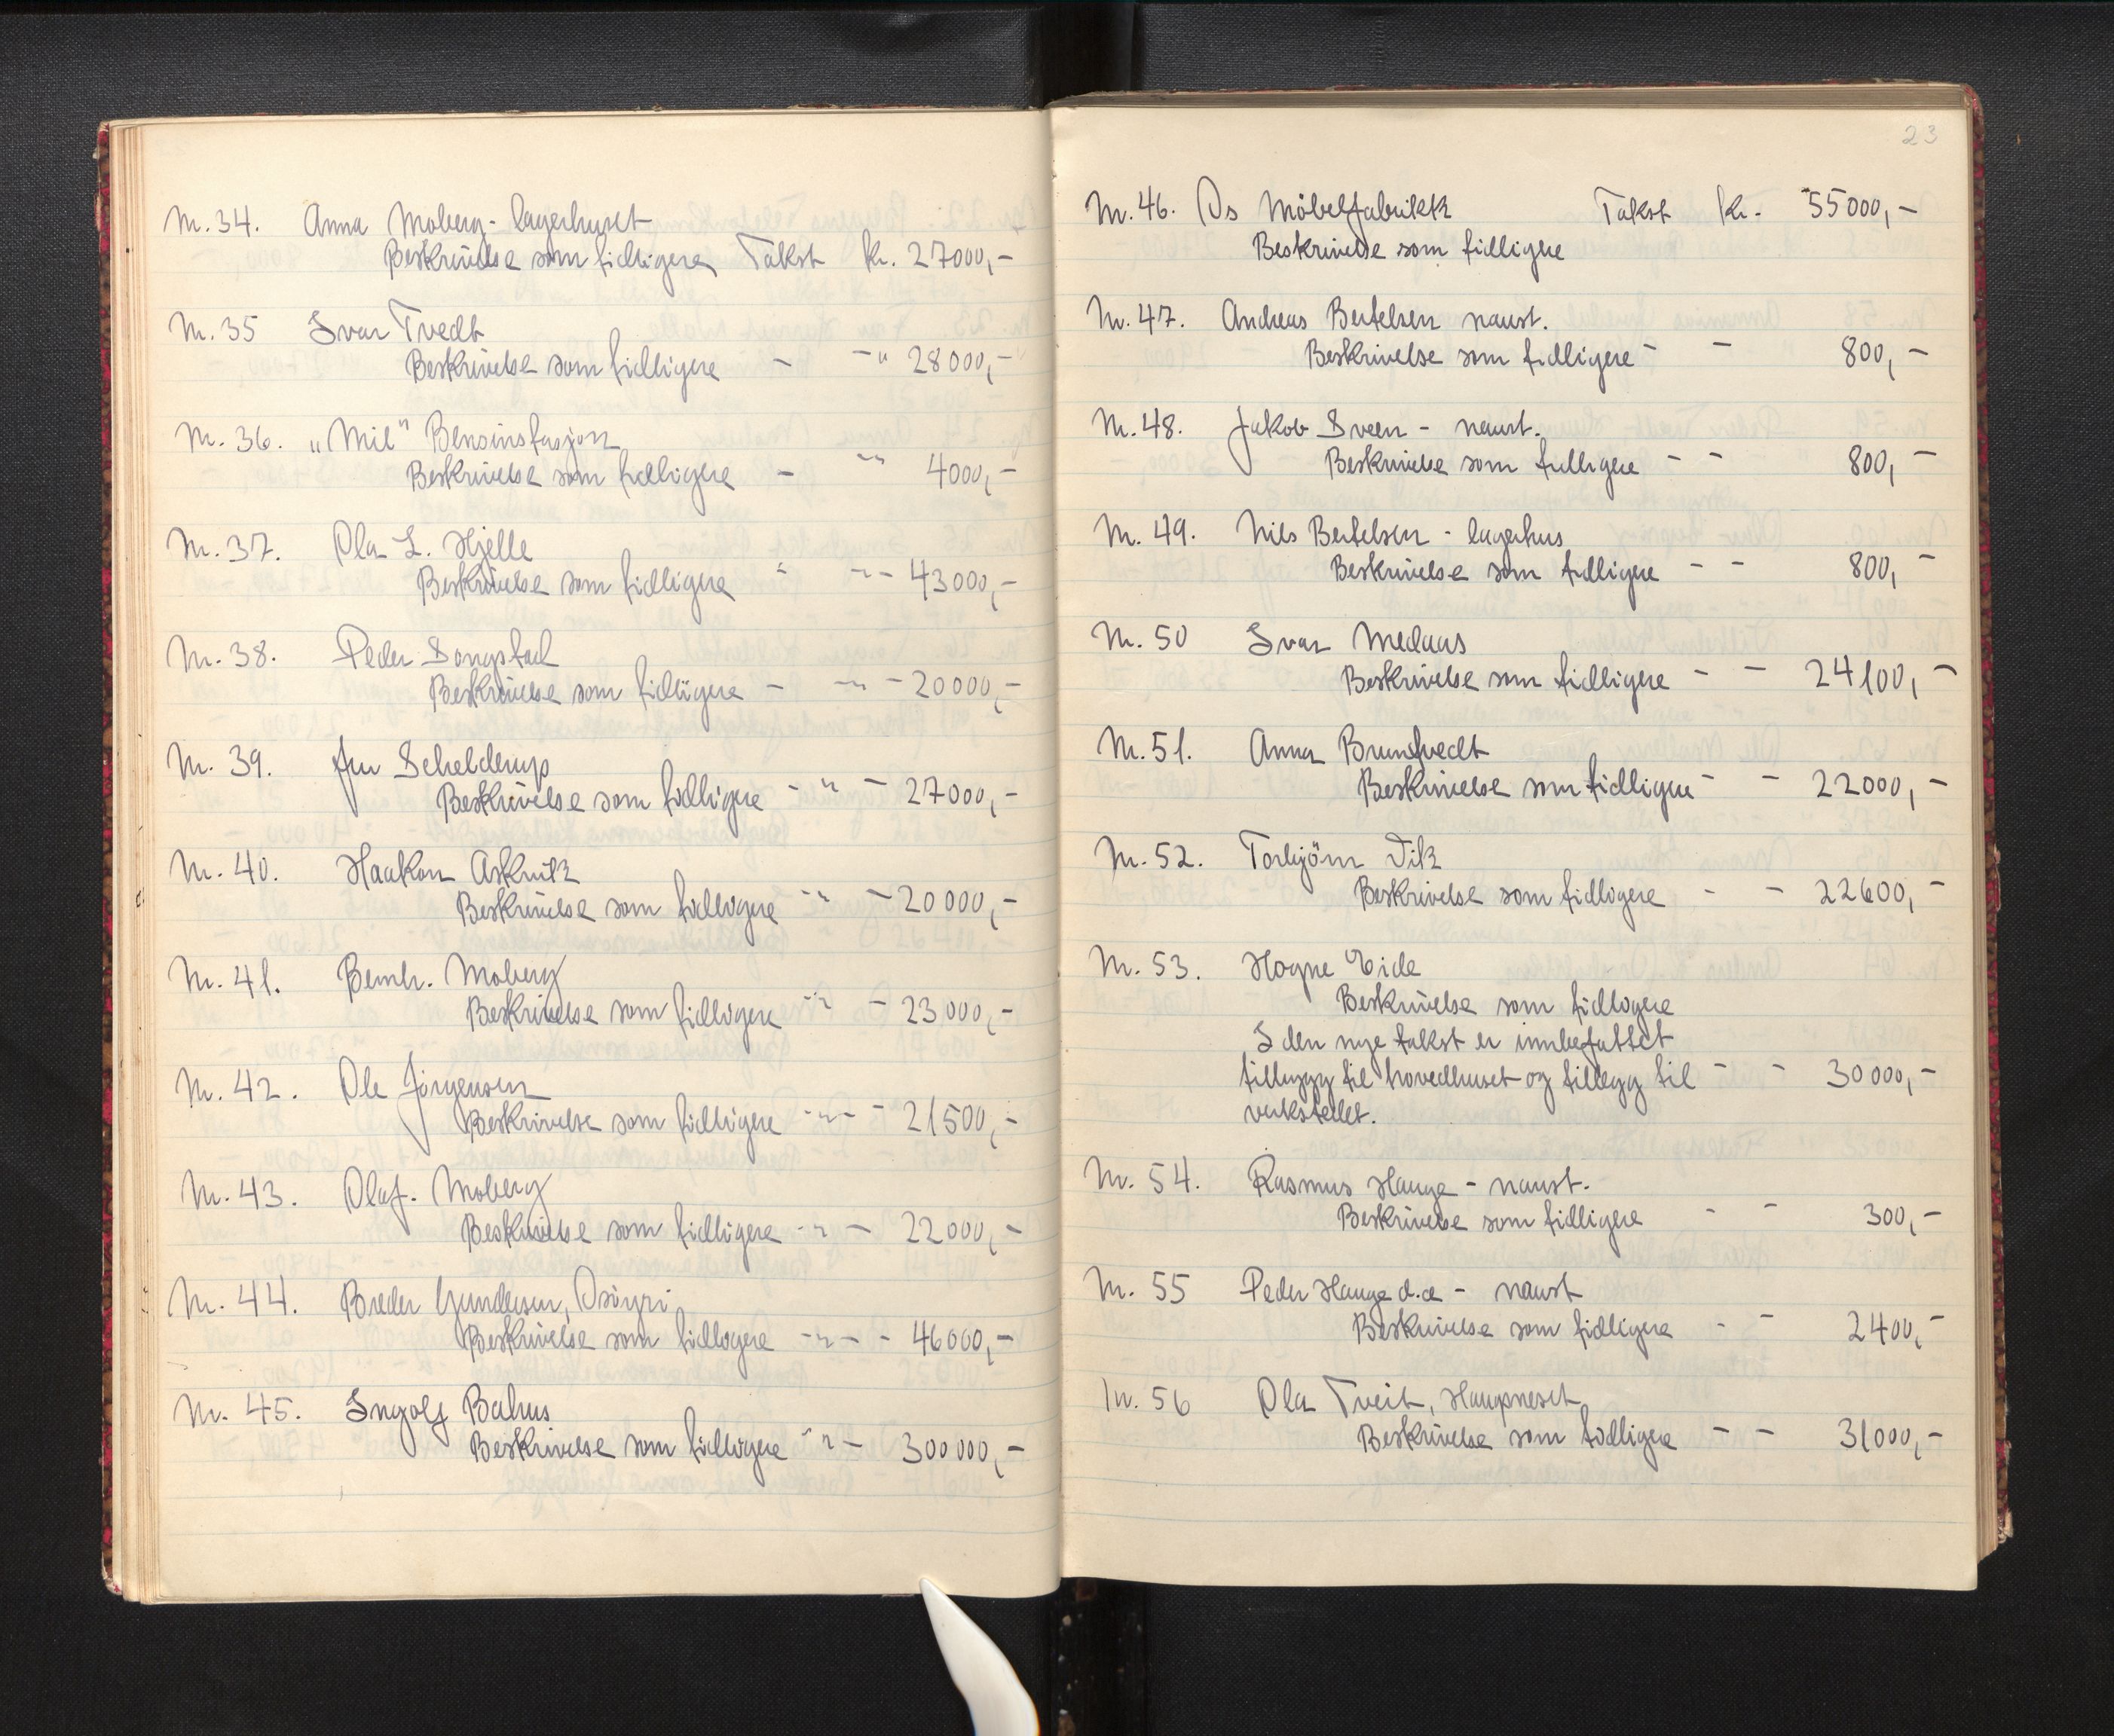 Nr. 34. Anna Moberg - lagerhuset
Beskrivelse som tidligere, Takst kr. 27000,-
Nr. 35 Ivar Tvedt
Beskrivelse som tidligere - -" 28000,-
Nr. 36. "Mil" Bensinstasjon
Beskrivelse som tidligere - -"- 4000,-
Nr. 37. Ola L. Hjelle
Beskrivelse som tidligere - -"- 43000,-
Nr. 38. Peder Songstad
Beskrivelse som tidligere - -"- - 20000,-
Nr. 39. Schelderup
Beskrivelse som tidligere - " - 27000,-
Nr. 40. Haakon Askvik
Beskrivelse som tidligere -"- - 20000,-
Nr. 41. Bernh. Moberg
Beskrivelse som tidligere -"- - 23000,-
Nr. 42. Ole Jörgensen
Beskrivelse som tidligere -"- - 21500,-
Nr. 43. Olaf. Moberg
Beskrivelse som tidligere -"- - 22000,-
Nr. 44. Brödr Gundersen, Osöyri
Beskrivelse som tidligere -"- - 46000,-
Nr. 45. Ingolf Bahus
Beskrivelse som tidligere -"- - 300000,-
23
Nr. 46. Os Möbelfabrikk Takst kr. 55000,-
Beskrivelse som tidligere
Nr. 47. Andreas Bertelsen naust.
Beskrivelse som tidligere - - 800,-
Nr. 48. Jakob Sveen - naust.
Beskrivelse som tidligere - - 800,-
Nr. 49. Nils Bertelsen - lagerhus
Beskrivelse som tidligere - - 800,-
Nr. 50 Ivar Medaas
Beskrivelse som tidligere - - 24100,-
Nr. 51. Anna Bruntvedt
Beskrivelse som tidligere - - 22000,-
Nr. 52. Torbjörn Vik
Beskrivelse som tidligere - - 22600,-
Nr. 53. Hogne Eide
Beskrivelse som tidligere
I den nye takst er innbefattet
tillegg til hovedhuset og tillegg til - - 30000,-
verkstedet.
Nr. 54. Rasmus Hauge - naust.
Beskrivelse som tidligere - - 300,-
Nr. 55 Peder Hauge d.e - naust
Beskrivelse som tidligere - - 2400,-
Nr. 56 Ola Tveit, Haugneset
Beskrivelse som tidligere - - 31000,-